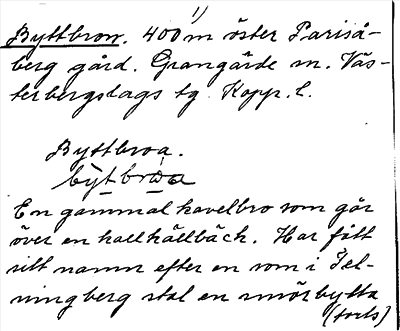 1)
Byttbron. 400 m öster Pariså-
berg gård. Grangärde sn. Väs-
terbergslags tg Kopp. l.
Byttbroa.
bỳt-brɷa
En gammal kavelbro som går
över en kallkällbäck. Har fått
sitt namn efter en som i Tel-
ningberg stal en smörbytta
(forts)